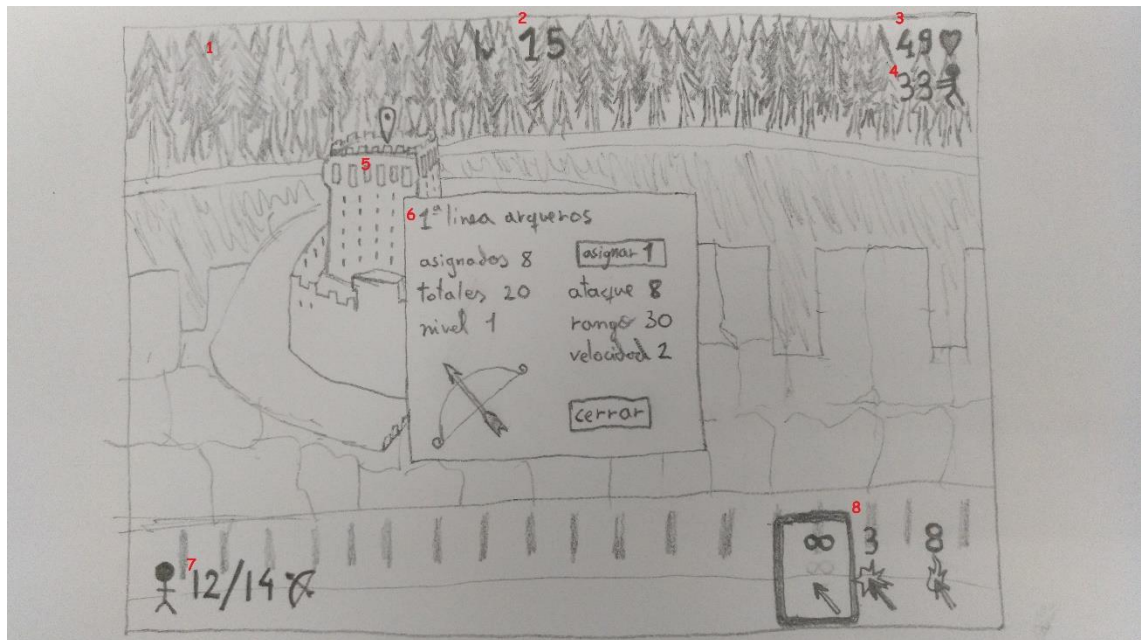 1
2
3
15
49
4
33
5
6
1ª linea arqueros
asignados 8
asignar 1
totales 20
ataque 8
nivel 1
rango 30
velocidad 2
cerrar
8
∞ 3 8
7
12/14